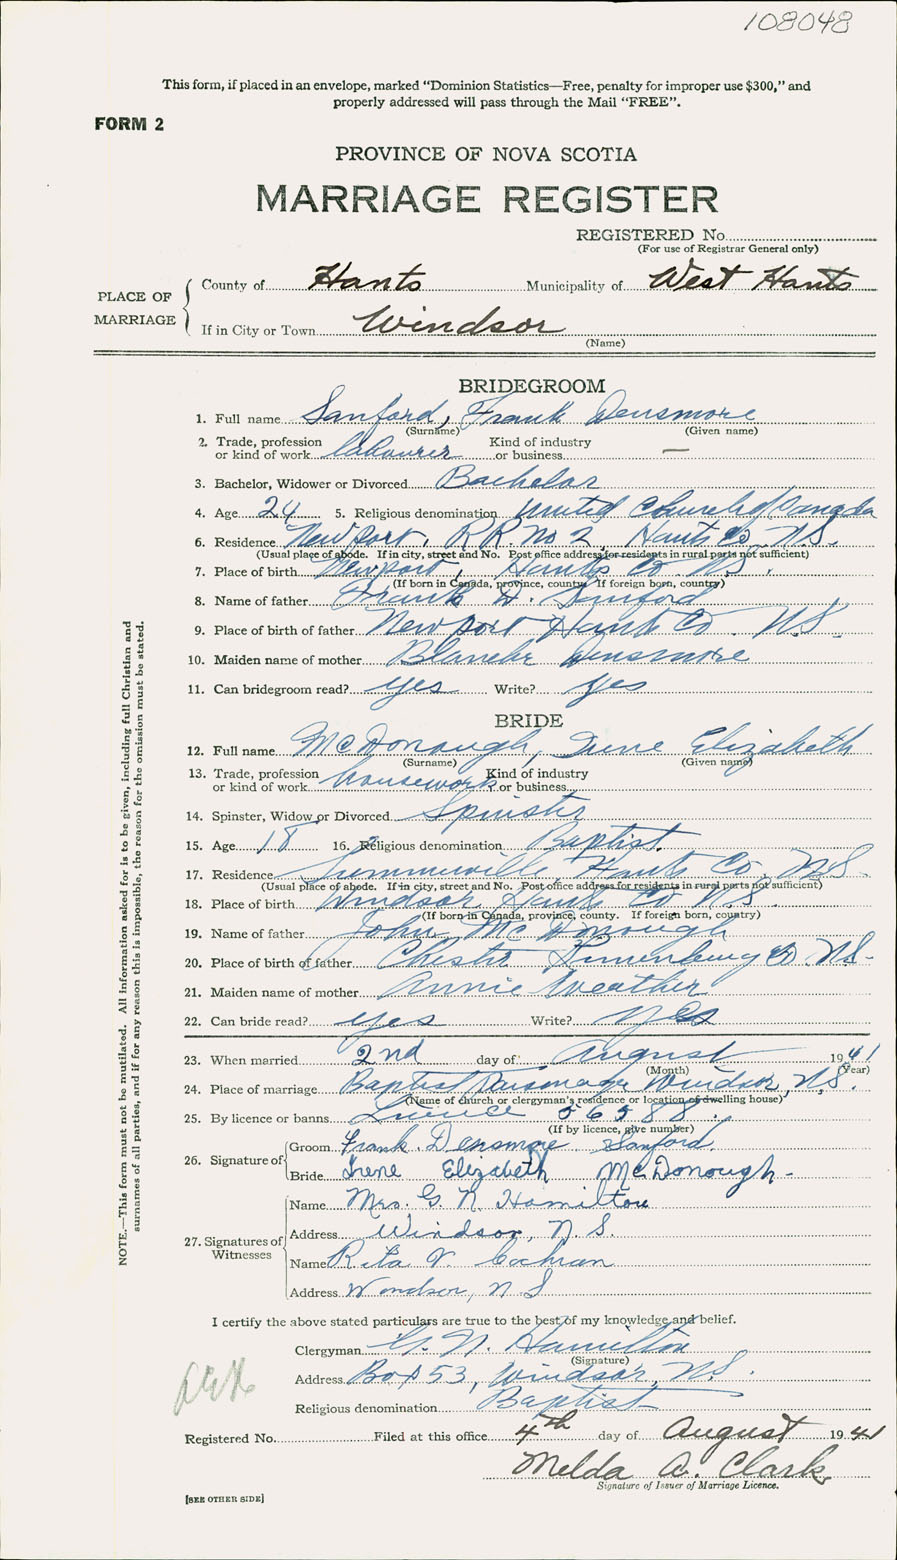 108048
This form, if placed in an envelope, marked "Dominion Statistics—Free, penalty for improper use $300," and
properly addressed will pass through the Mail "FREE".
FORM 2
PROVINCE OF NOVA SCOTIA
MARRIAGE REGISTER
REGISTERED No.
(For use of Registrar General only)
PLACE OF MARRIAGE
County of Hants Municipality of West Hants
If in City or Town Windsor
(Name)
BRIDEGROOM
1. Full name Sanford, Frank Densmore
(Surname) (Given name)
2. Trade, profession or kind of work labourer Kind of industry or business —
3. Bachelor, Widower or Divorced Bachelor
4. Age 24 5. Religious denomination United Church of Canada
6. Residence Newport, R.R. No 2 Hants Co. N.S.
(Usual place of abode. If in city, street and No. Post office address for residents in rural parts not sufficient)
7. Place of birth Newport, Hants Co. N.S.
(If born in Canada, province, county. If foreign born, country)
8. Name of father Frank D. Sanford
9. Place of birth of father Newport Hants Co. N.S.
10. Maiden name of mother Blanche Densmore
11. Can bridegroom read? yes Write? yes
BRIDE
12. Full name McDonough, Irene Elizabeth
(Surname) (Given name)
13. Trade, profession or kind of work housework Kind of industry or business
14. Spinster, Widow or Divorced Spinster
15. Age 18 16. Religious denomination Baptist.
17. Residence Summerville Hants Co. N.S.
(Usual place of abode. If in city, street and No. Post office address for residents in rural parts not sufficient)
18. Place of birth Windsor Hants Co N.S.
(If born in Canada, province, county. If foreign born, country)
19. Name of father John McDonough
20. Place of birth of father Chester Lunenburg Co. N.S.
21. Maiden name of mother Annie Weather
22. Can bride read? yes Write? yes
23. When married 2nd day of August 1941
(Month) (Year)
24. Place of marriage Baptist Parsonage Windsor, N.S.
(Name of church or clergyman's residence or location of dwelling house)
25. By licence or banns Licence 56588.
(If by licence, give number)
26. Signature of
Groom Frank Densmore Sanford.
Bride Irene Elizabeth McDonough-
27. Signatures of Witnesses
Name Mrs. G. N. Hamilton
Address Windsor, N.S.
Name Rita V. Cochran
Address Windsor, N.S
I certify the above stated particulars are true to the best of my knowledge and belief.
Clergyman G. N. Hamilton
(Signature)
Address Box 53, Windsor, N.S.
Religious denomination Baptist
Registered No. Filed at this office 4th day of August 1941
Melda A. Clark
Signature of Issuer of Marriage Licence.
[SEE OTHER SIDE]
NOTE.—This form must not be mutilated. All information asked for is to be given, including full Christian and
surnames of all parties, and if for any reason this is impossible, the reason for the omission must be stated.